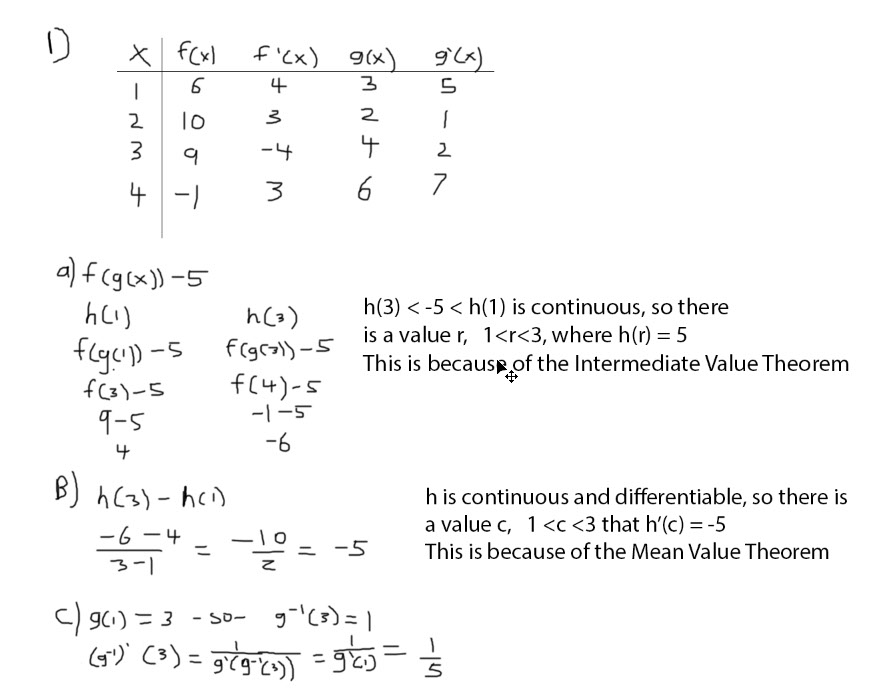 1)
x f(x) f'(x) g(x) g'(x)
1 6 4 3 5
2 10 3 2 1
3 9 -4 4 2
4 -1 3 6 7
a) f(g(x)) - 5
h(1) h(3)
f(g(1)) - 5 f(g(3)) - 5
f(3) - 5 f(4) - 5
9 - 5 -1 - 5
4 -6
h(3) < -5 < h(1) is continuous, so there
is a value r, 1<r<3, where h(r) = 5
This is because of the Intermediate Value Theorem
B) h(3) - h(1)
-6 - 4 / 3 - 1 = -10 / 2 = -5
h is continuous and differentiable, so there is
a value c, 1 <c <3 that h’(c) = -5
This is because of the Mean Value Theorem
C) g(1) = 3 - so - g⁻¹(3) = 1
(g⁻¹)' (3) = 1 / g'(g⁻¹(3)) = 1 / g'(1) = 1 / 5